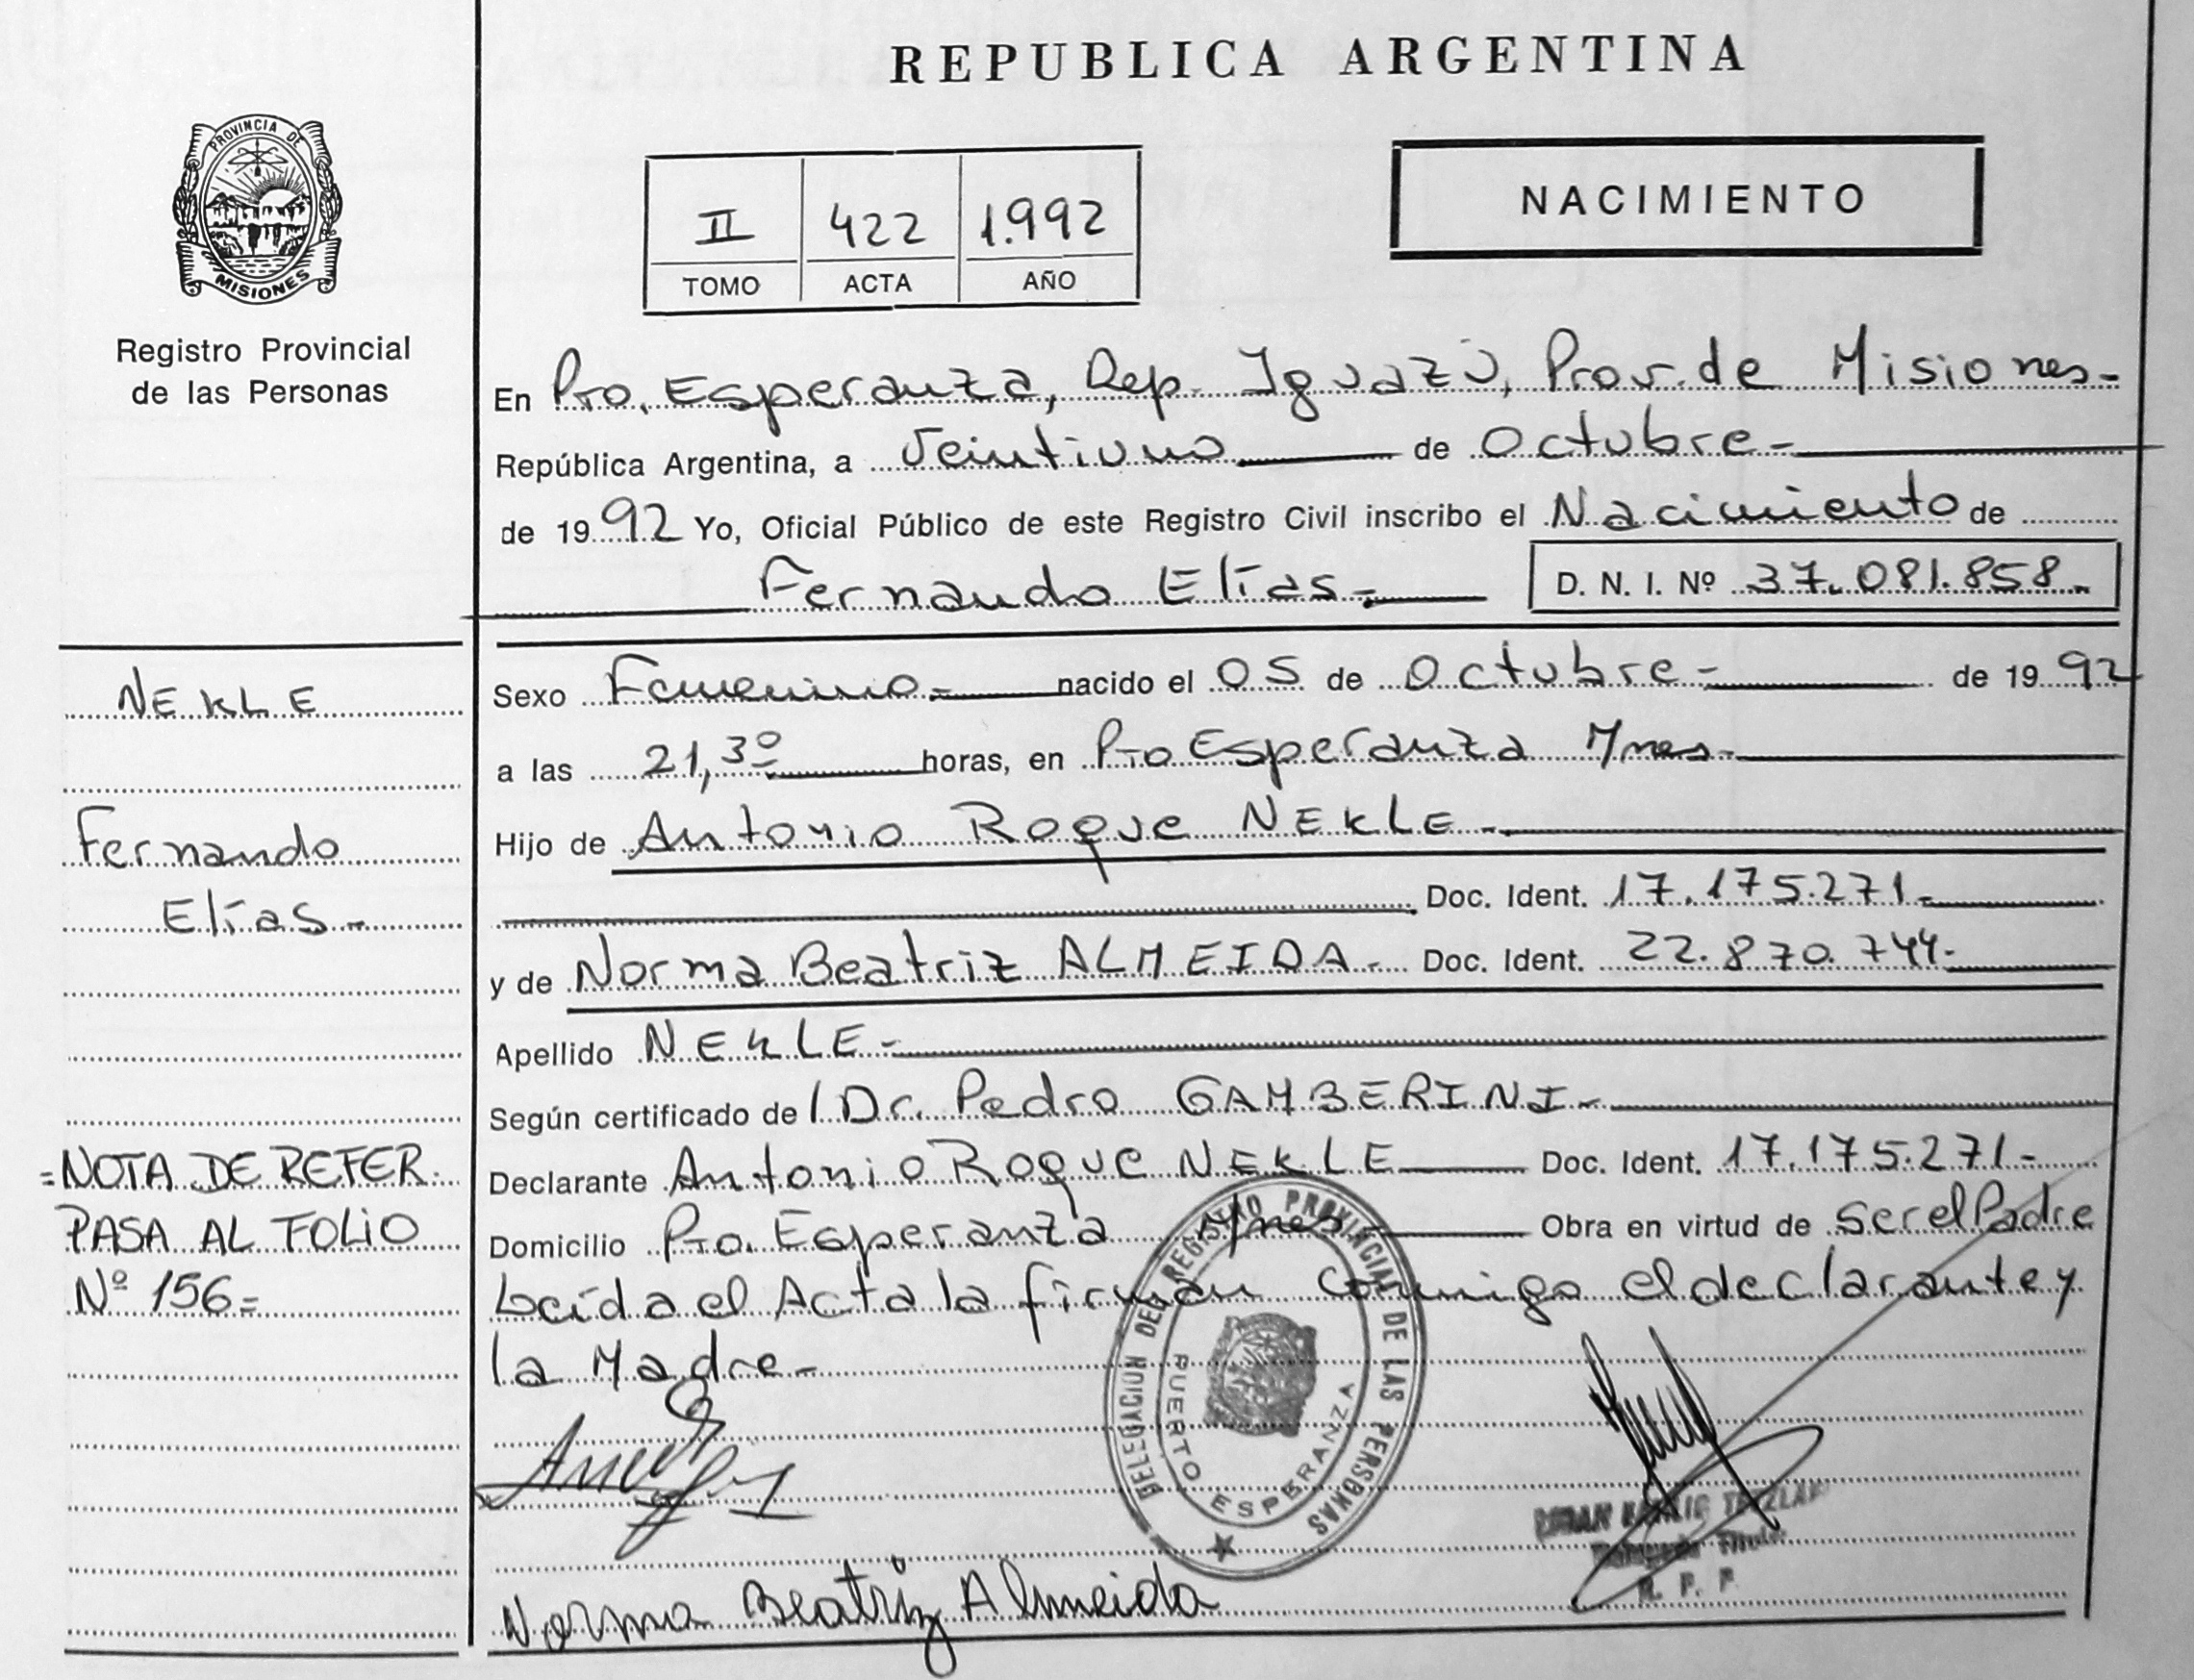 REPUBLICA ARGENTINA
PROVINCIA DE
MISIONES
Registro Provincial
de las Personas
II 422 1.992
TOMO ACTA AÑO
NACIMIENTO
En Pto. Esperanza, Dep. Iguazú, Prov. de Misiones-
República Argentina, a Veintiuno de Octubre-
de 1992 Yo, Oficial Público de este Registro Civil inscribo el Nacimiento de
Fernando Elías.- D. N. I. Nº 37.081.858.-
NEKLE
Fernando
Elías.-
=NOTA DE REFER.
PASA AL FOLIO
Nº 156=
Sexo Femenino.- nacido el 05 de Octubre- de 1992
a las 21,30 horas, en Pto Esperanza Mnes-
Hijo de Antonio Roque NEKLE.-
Doc. Ident. 17.175.271.-
y de Norma Beatriz ALMEIDA.- Doc. Ident. 22.870.744.-
Apellido NEKLE.-
Según certificado del Dr. Pedro GAMBERINI.-
Declarante Antonio Roque NEKLE Doc. Ident. 17.175.271.-
Domicilio Pto. Esperanza Mnes- Obra en virtud de ser el Padre
Leída el Acta la firman conmigo el declarante y
la Madre-
DELEGACION DEL REGISTRO PROVINCIAL DE LAS PERSONAS
PUERTO ESPERANZA
Titular
R. P. P.
Norma Beatriz Almeida